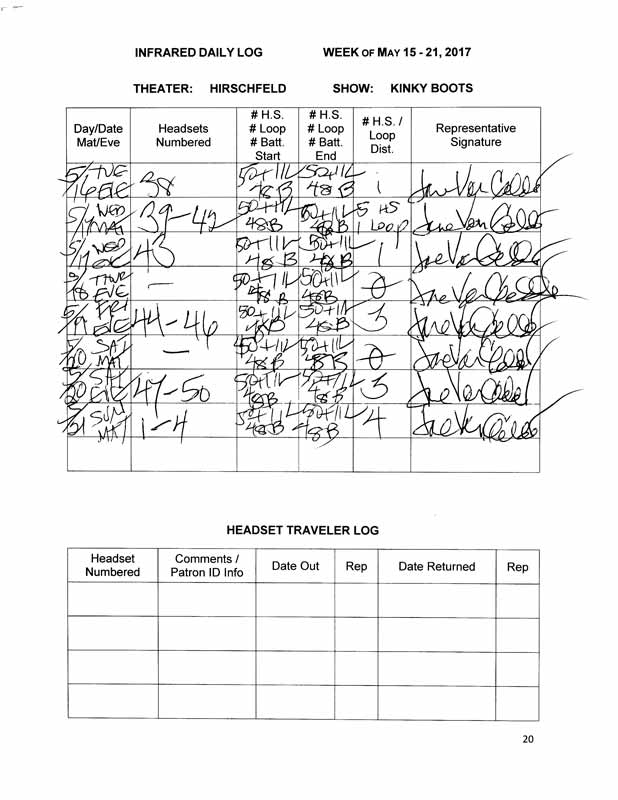 INFRARED DAILY LOG WEEK OF MAY 15 - 21, 2017
THEATER: HIRSCHFELD SHOW: KINKY BOOTS
Day/Date Mat/Eve Headsets Numbered # H.S. # Loop # Batt. Start # H.S. # Loop # Batt. End # H.S. / Loop Dist. Representative Signature
5/16 TUE EVE 38 50+11L 48B 50+11L 48B 1 Jane Van
5/17 WED MAT 39-42 50+11L 48B 50+11L 48B 5 HS 1 Loop Jane Van
5/17 WED EVE 43 50+11L 48B 50+11L 48B 1 Jane Van
5/18 THUR EVE — 50+11L 48B 50+11L 48B 0 Jane Van
5/19 FRI EVE 44-46 50+11L 48B 50+11L 48B 3 Jane Van
5/20 SAT MAT — 50+11L 48B 50+11L 48B 0 Jane Van
5/20 SAT EVE 47-50 50+11L 48B 50+11L 48B 3 Jane Van
5/21 SUN MAT 1-4 50+11L 48B 50+11L 48B 4 Jane Van
HEADSET TRAVELER LOG
Headset Numbered Comments / Patron ID Info Date Out Rep Date Returned Rep
20